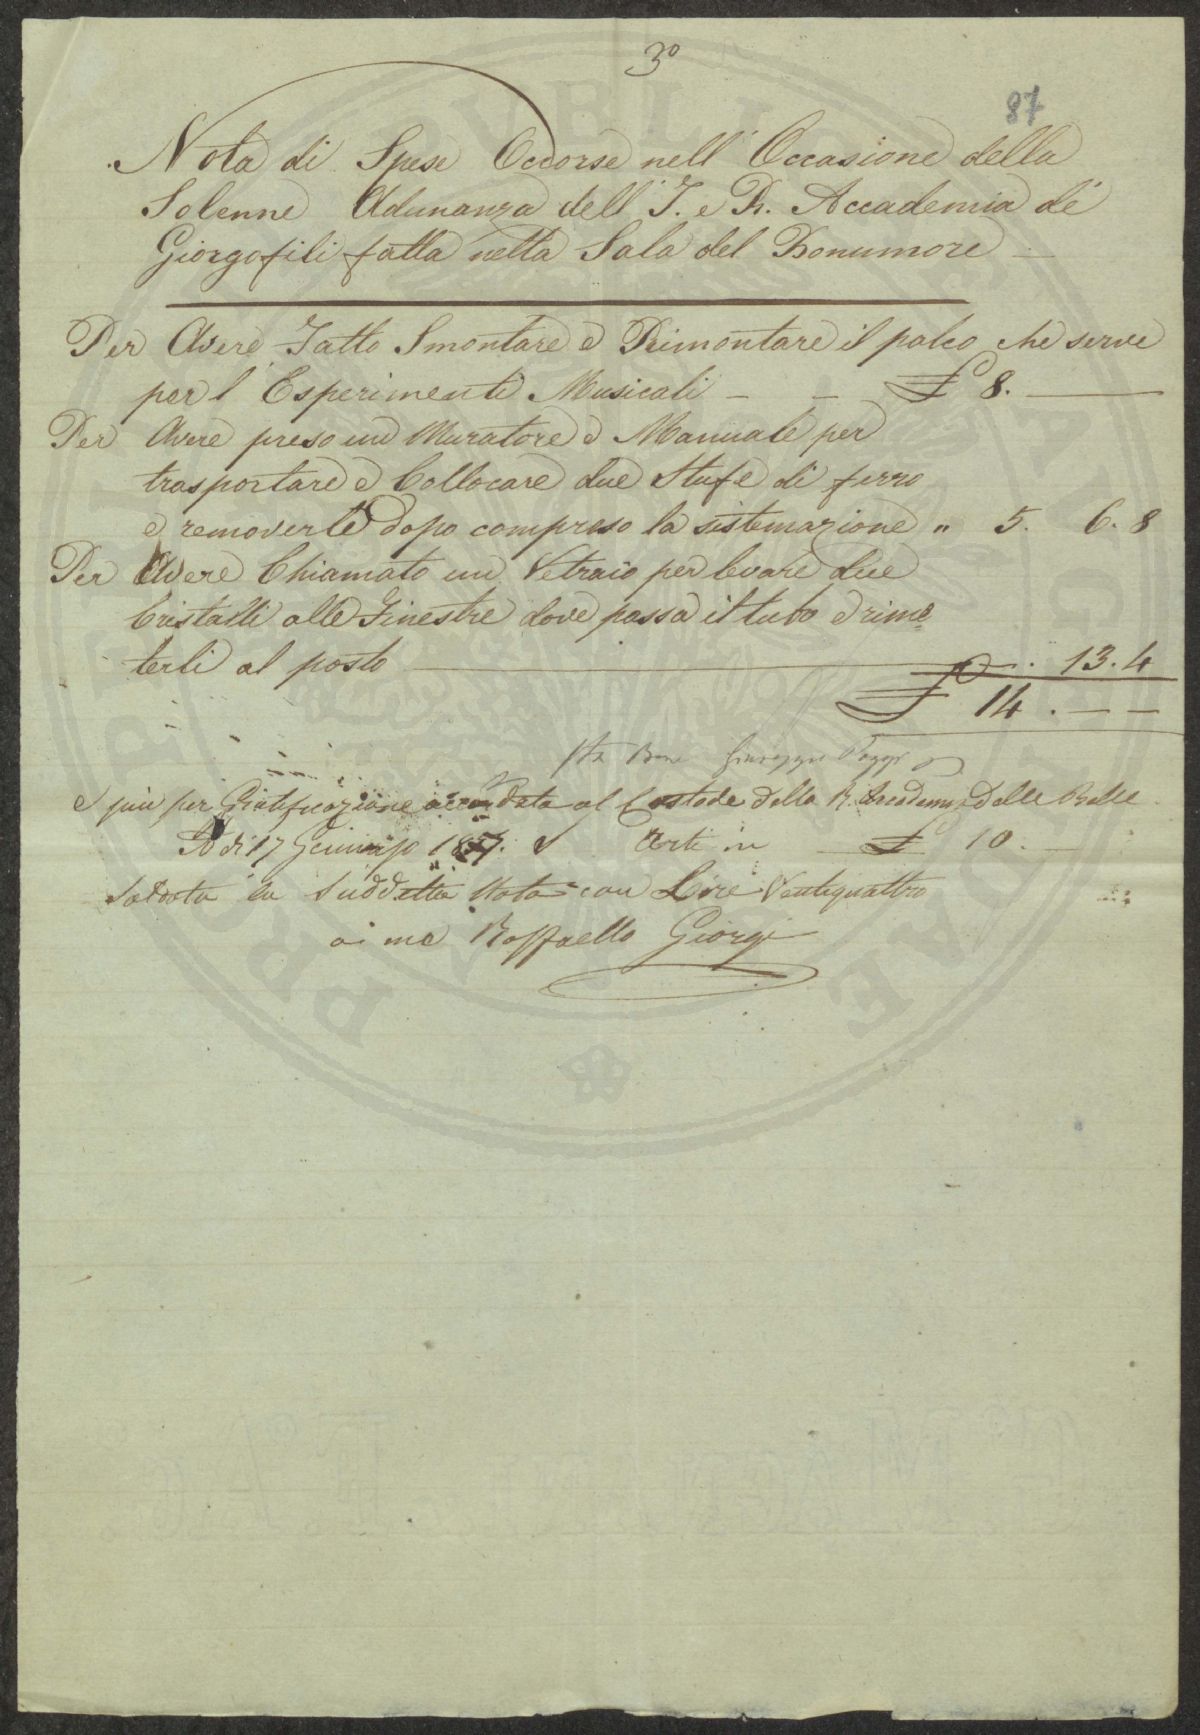 3º
87
Nota di Spese Occorse nell' Occasione della
Solenne Adunanza dell' I. e R. Accademia de'
Giorgofili fatta nella Sala del Bonumore
Per Avere Fatto Smontare e Rimontare il palco che serve
per l' Esperimenti Musicali — — £ 8. —
Per Avere preso un Muratore e Manuale per
trasportare e Collocare due Stufe di ferro
e removerle dopo compreso la sistemazione " 5. 6. 8
Per Avere Chiamato un Vetraio per levare due
Cristalli alle Finestre dove passa il tubo e rime
terli al posto — . 13. 4
£ 14. — —
Sta Bene Giuseppe Poggi
E più per Gratificazione accordata al Custode della R. Accademia delle Belle
A di 17 Gennajo 1857. Arti in £ 10. —
Saldata la suddetta Nota con Lire Ventiquattro
a me Raffaello Giorgi